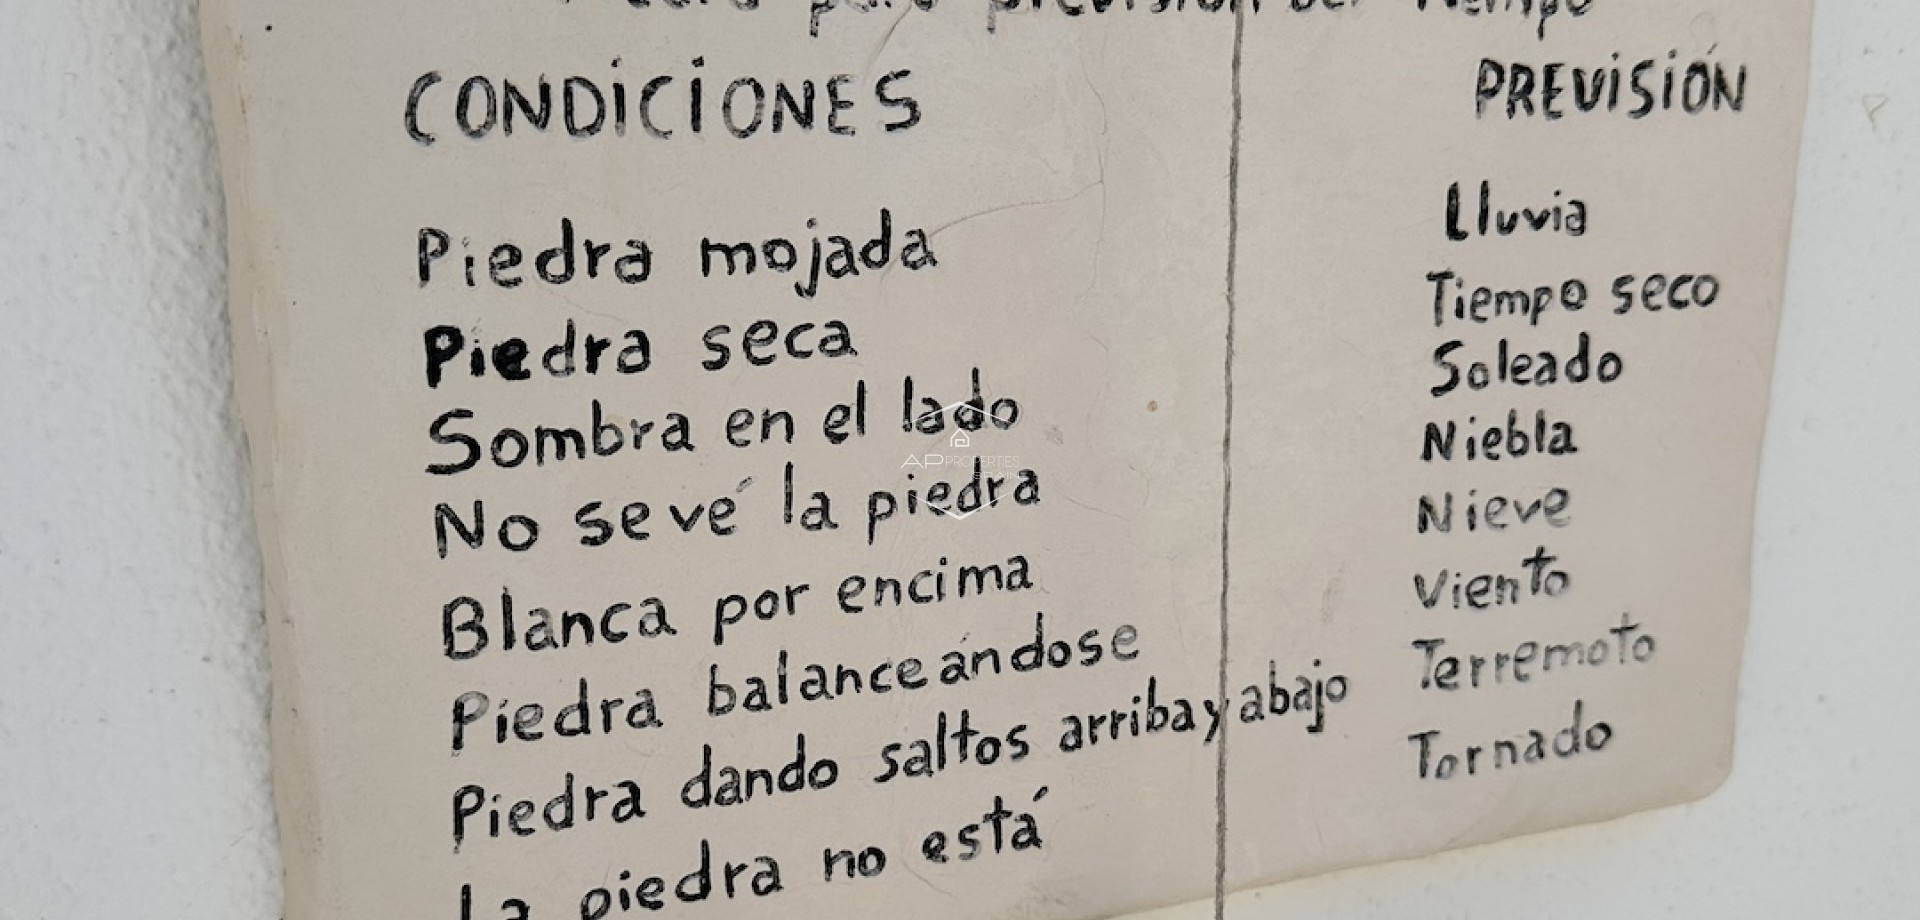 para previsión del tiempo
CONDICIONES
PREVISIÓN
Piedra mojada
Lluvia
Piedra seca
Tiempo seco
Sombra en el lado
Soleado
No se vé la piedra
Niebla
Blanca por encima
Nieve
Piedra balanceándose
Viento
Piedra dando saltos arriba y abajo
Terremoto
La piedra no está
Tornado
AP PROPERTIES